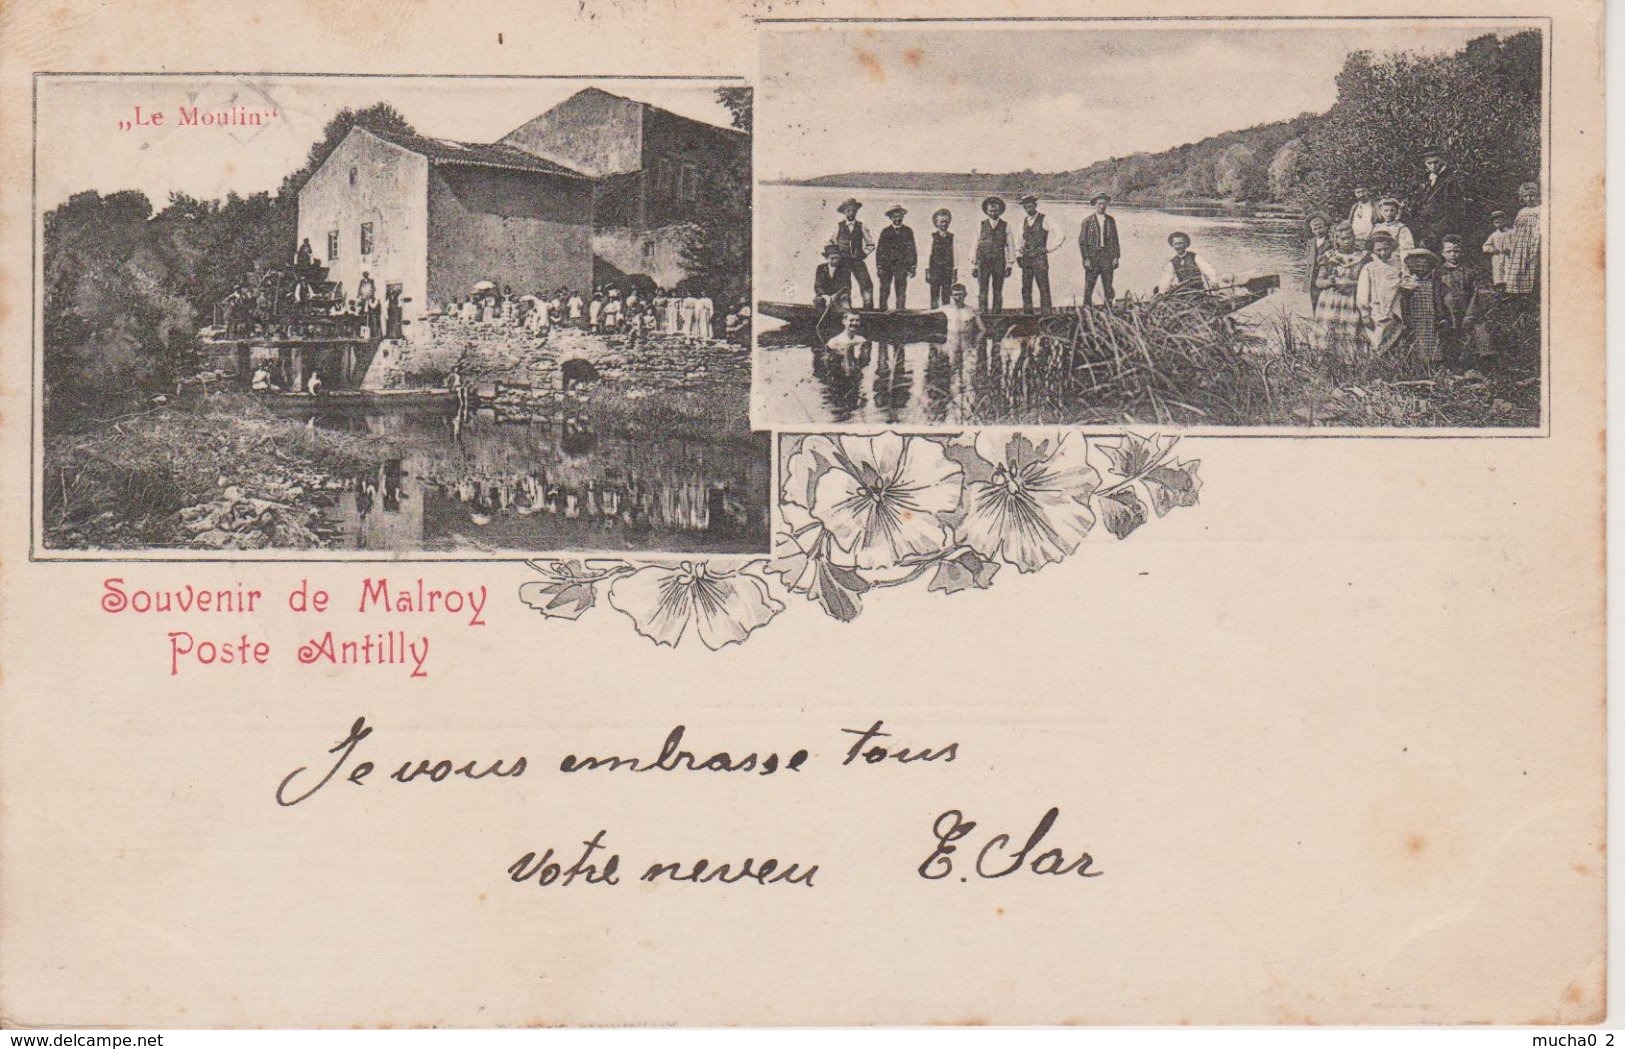 „Le Moulin“
Souvenir de Malroy
Poste Antilly
Je vous embrasse tous
votre neveu E. Sar
delcampe.net
mucha0_2